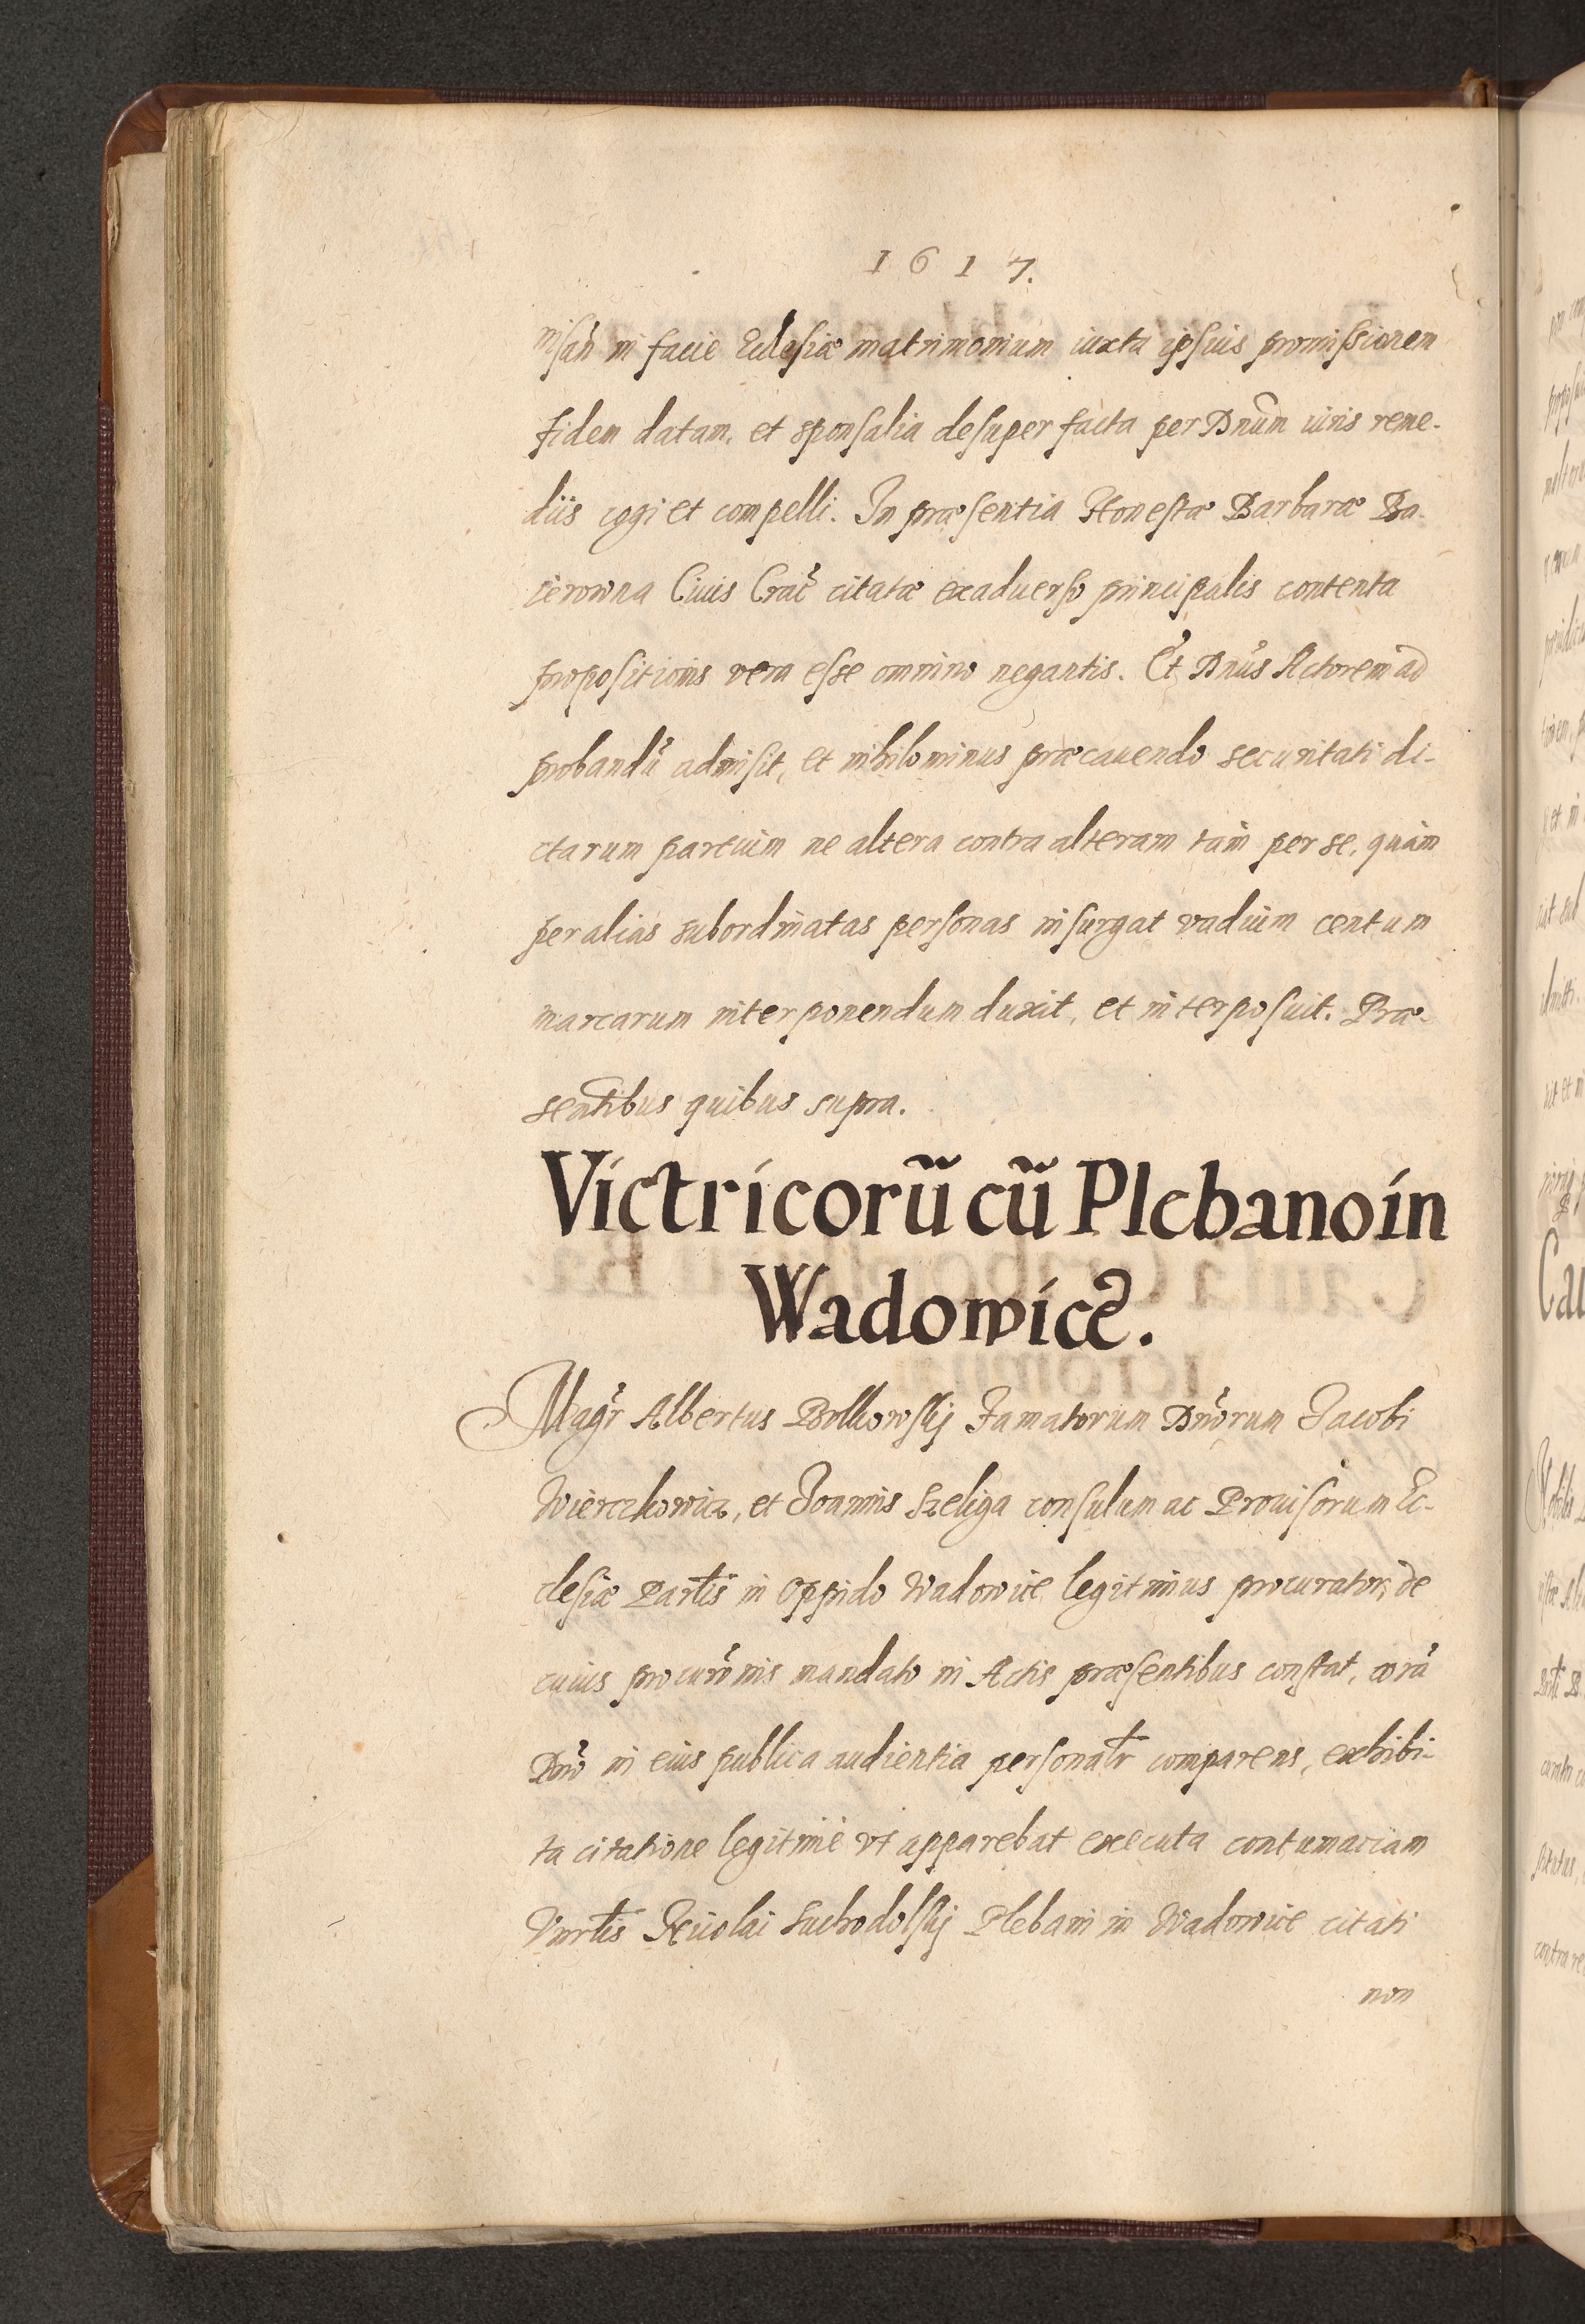 1617.
nisan̄ in facie Ecclesiæ matrimonium iuxta ipsius promissionem
fidem datam, et sponsalia desuper facta per Dnūm iuris reme-
diis cogi et compelli. In præsentia Honestæ Barbaræ Ba-
ierowna Ciuis Crac̄ citatæ exaduerso principalis contenta
propositionis vera esse omnino negantis. Et Dnūs Actorem ad
probandū admisit, et nihilominus præcauendo securitati di-
ctarum partium ne altera contra alteram tam per se, quàm
per alias subordinatas personas insurgat vadium centum
marcarum interponendum duxit, et interposuit. Præ-
sentibus quibus supra.
Victricorū cū Plebano in
Wadowicē.
Magr̄ Albertus Bolkowskij Famatorum Dnōrum Jacobi
Wierczkowicz, et Joannis Szeliga consulum ac Prouisorum Ec-
clesiæ Partis in Oppido Wadowice legitimus procurator, de
cuius procurōnis mandato in Actis præsentibus constat, corā
Dnō in eius publica audientia personatr comparens, exhibi-
ta citatione legitimè vt apparebat executa contumaciam
Vnrlis Nicolai Suchodolskij Plebani in Wadowice citati
non